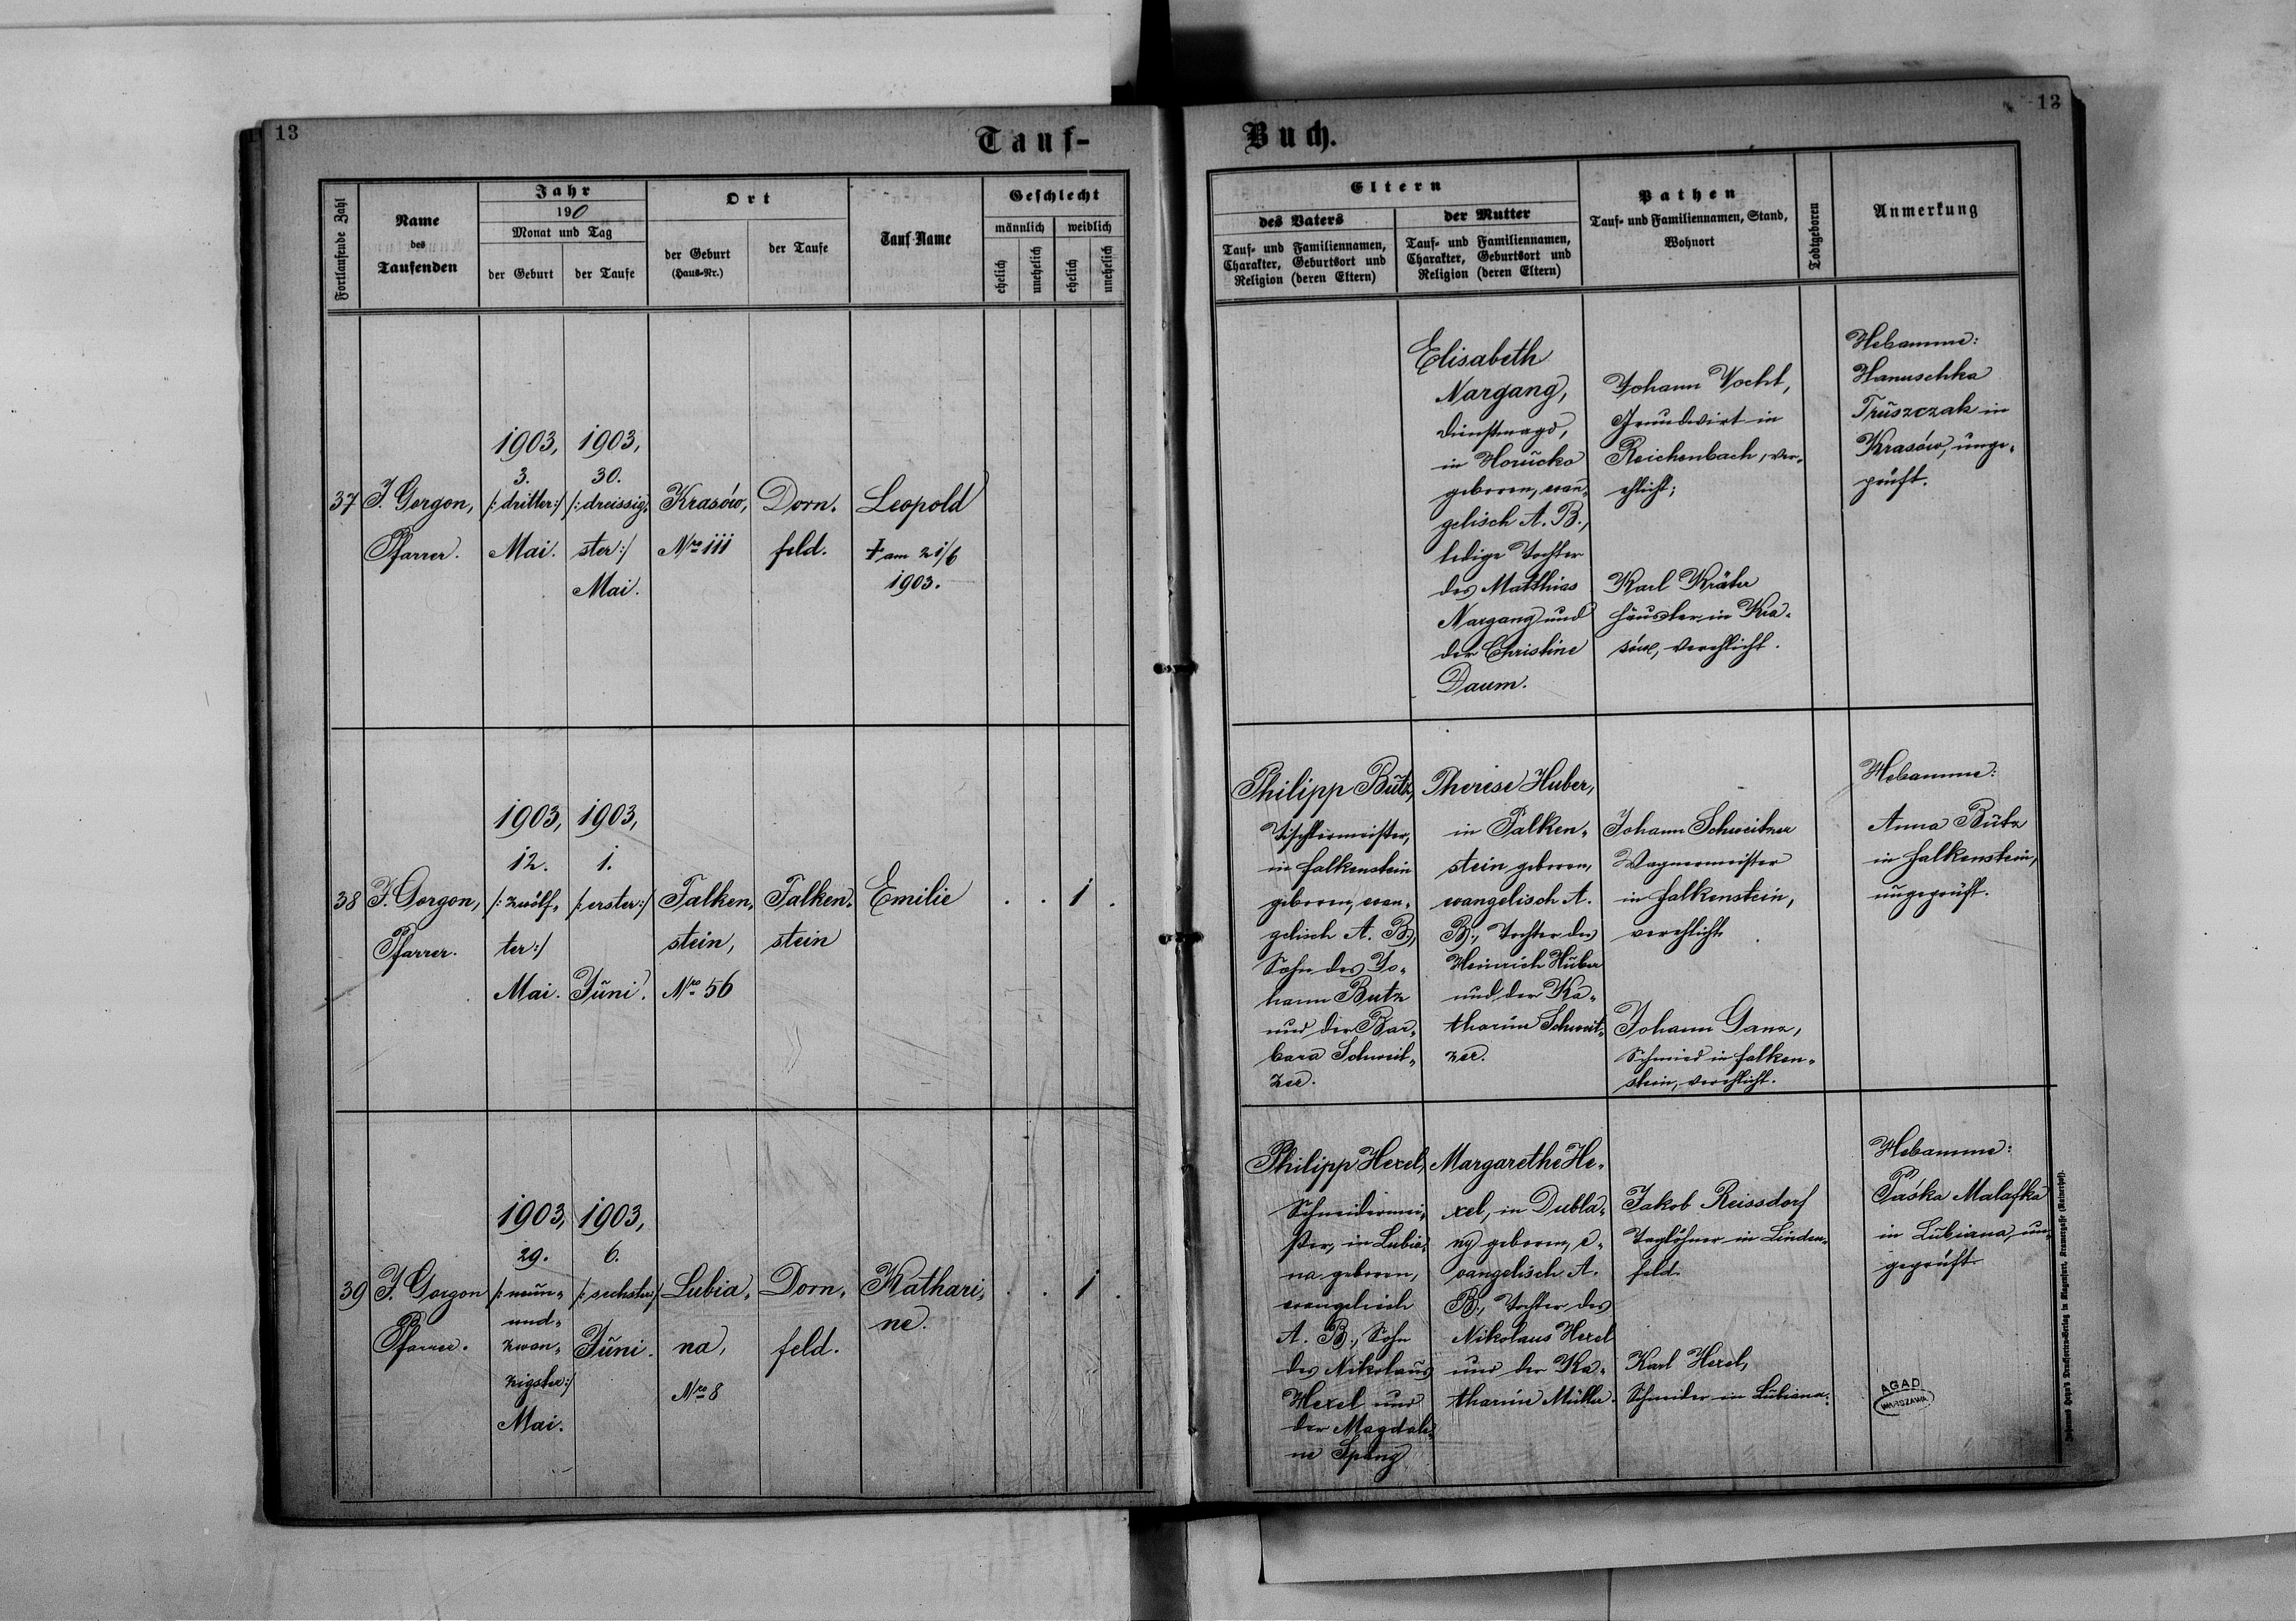 13
Tauf-
Buch.
13
Fortlaufende Zahl
Name
des
Taufenden
Jahr
190
Monat und Tag
der Geburt
der Taufe
Ort
der Geburt
(Haus-Nr.)
der Taufe
Tauf-Name
Geschlecht
männlich
weiblich
ehelich
unehelich
ehelich
unehelich
Eltern
des Vaters
Tauf- und Familiennamen,
Charakter, Geburtsort und
Religion (deren Eltern)
der Mutter
Tauf- und Familiennamen,
Charakter, Geburtsort und
Religion (deren Eltern)
Pathen
Tauf- und Familiennamen, Stand,
Wohnort
Todtgeboren
Anmerkung
37
J. Gorgon,
Pfarrer.
1903,
3.
/: dritter:/
Mai.
1903,
30.
/: dreissig-
ster:/
Mai.
Krasów,
Nro 111
Dorn-
feld.
Leopold
+ am 21/6
1903.
Elisabeth
Nargang,
Dienstmagd,
in Horucko
geboren, evan-
gelisch A. B.,
ledige Tochter
des Matthias
Nargang und
der Christine
Daum.
Johann Vocht,
Grundwirt in
Reichenbach, ver-
ehlicht;
Karl Kräher
Häusler in Kra-
sów, verehlicht.
Hebamme:
Hanuschka
Truszczak in
Krasów, unge-
prüft.
38
J. Gorgon,
Pfarrer.
1903,
12.
/: zwölf-
ter:/
Mai.
1903,
1.
/: erster:/
Juni.
Falken-
stein,
Nro 56
Falken-
stein
Emilie
. . 1 .
Philipp Butz,
Tischlermeister,
in Falkenstein
geboren, evan-
gelisch A. B.,
Sohn des Jo-
hann Butz
und der Bar-
bara Schweit-
zer.
Therese Huber,
in Falken-
stein geboren,
evangelisch A.
B., Tochter des
Heinrich Huber
und der Ka-
tharine Schweit-
zer.
Johann Schweitzer
Wagnermeister
in Falkenstein,
verehlicht
Johann Ganz,
Schmied in Falken-
stein, verehlicht.
Hebamme:
Anna Butz
in Falkenstein,
ungeprüft.
39
J. Gorgon
Pfarrer.
1903,
29.
/: neun-
und-
zwan-
zigster:/
Mai.
1903,
6.
/: sechster:/
Juni.
Lubia-
na,
Nro 8
Dorn-
feld.
Kathari-
ne.
. . 1 .
Philipp Hexel,
Schneidermei-
ster, in Lubia-
na geboren,
evangelisch
A. B., Sohn
des Nikolaus
Hexel und
der Magdale-
ne Spang
Margarethe He-
xel, in Dubla-
ny geboren, e-
vangelisch A.
B., Tochter des
Nikolaus Hexel
und der Ka-
tharine Müller.
Jakob Reissdorf
Taglöhner in Linden-
feld.
Karl Hexel,
Schneider in Lubiana.
Hebamme:
Paśka Malafka
in Lubiana, un-
geprüft
AGAD
WARSZAWA